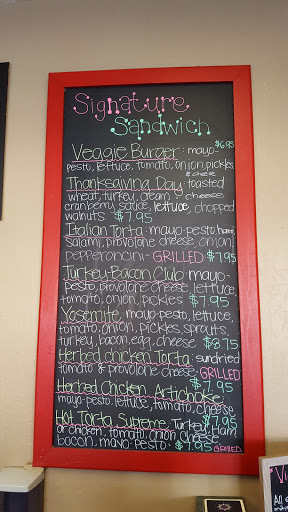 Signature
Sandwich
Veggie Burger: mayo- $6.95
pesto, lettuce, tomato, onion, pickles
& cheese
Thanksgiving Day: toasted
wheat, turkey, cream cheese
cranberry sauce, lettuce, chopped
walnuts $7.95
Italian Torta: mayo-pesto, ham,
salami, provolone cheese, onion,
pepperoncini - GRILLED $7.95
Turkey-Bacon Club: mayo-
pesto, provolone cheese, lettuce,
tomato, onion, pickles $7.95
Yosemite: mayo-pesto, lettuce,
tomato, onion, pickles, sprouts,
turkey, bacon, egg, cheese $8.75
Herbed Chicken Torta: sundried
tomato & provolone cheese GRILLED
$7.95
Herbed Chicken Artichoke:
mayo-pesto, lettuce, tomato, cheese
$7.95
Hot Torta Supreme: Turkey, Ham
or chicken, tomato, onion, cheese
bacon, mayo-pesto $7.95 GRILLED
All